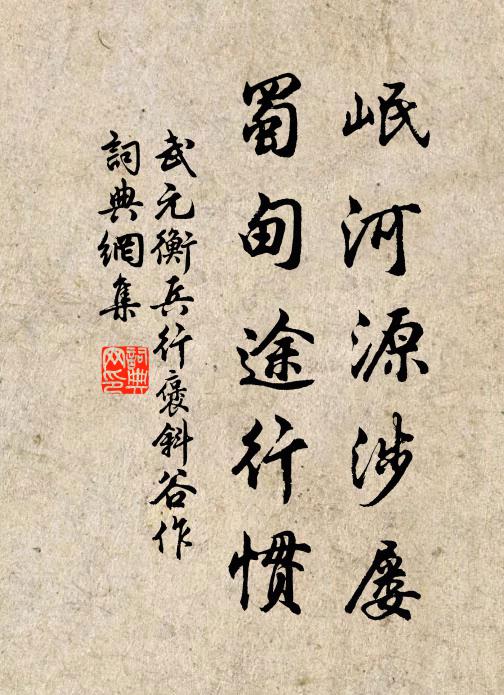 岷河源涉屡
蜀甸途行慣
武元衡兵行褒斜谷作
詞典網集
詞典網印